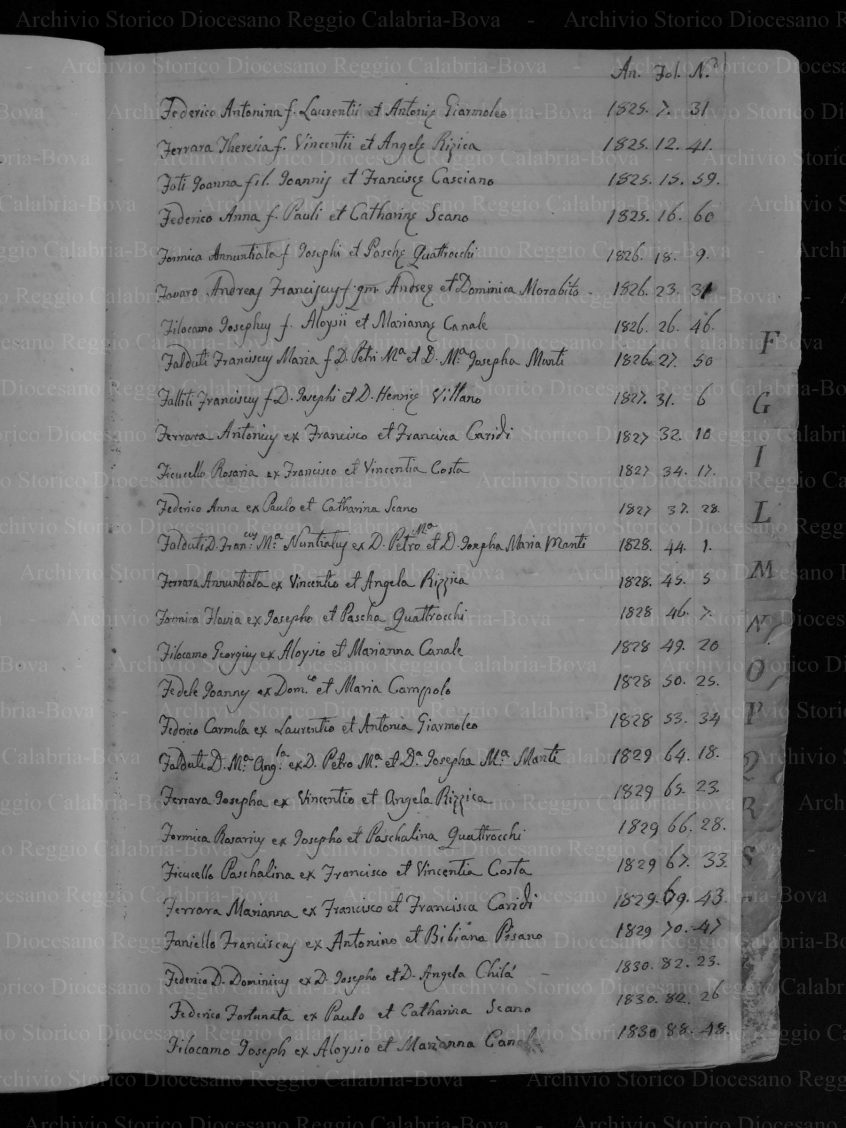 An. Fol. N.º
Federico Antonina f. Laurentii et Antonię Giarmoleo 1825. 7. 31
Ferrara Theresia f. Vincentii et Angelę Rizica 1825. 12. 41.
Foti Joanna fil. Joannis et Franciscę Casciano 1825. 15. 59.
Federico Anna f. Pauli et Catharinę Scano 1825. 16. 60
Formica Annuntiata f. Josephi et Paschę Quattrocchi 1826. 18. 9.
Favaro Andreas Franciscus f. qm Andreę et Dominica Morabito - 1826. 23. 31
Filocamo Josephus f. Aloysii et Mariannę Canale 1826. 26. 46.
Falduti Franciscus Maria f. D. Petri Mª et D. Mª Josepha Manti 1826. 27. 50
Falliti Franciscus f. D. Josephi et D. Henric Villano 1827. 31. 6
Ferrara Antonius ex Francisco et Francisca Caridi 1827 32. 10
Ficucello Rosaria ex Francisco et Vincentia Costa 1827 34. 17.
Federico Anna ex Paulo et Catharina Scano 1827 37. 28.
Falduti D. Fran.cus Mª Nuntiatus ex D. Petro Mª et D. Josepha Maria Manti 1828. 44. 1.
Ferrara Annuntiata ex Vincentio et Angela Rizzica 1828. 45. 5
Formica Flavia ex Josepho et Pascha Quattrocchi 1828 46. 7.
Filocamo Georgius ex Aloysio et Marianna Canale 1828 49. 20
Fedele Joannes ex Dom.co et Maria Campolo 1828 50. 25.
Federico Carmela ex Laurentio et Antonia Giarmoleo 1828 53. 34
Falduti D. Mª Ang.la ex D. Petro Mª et Dª Josepha Mª Manti 1829 64. 18.
Ferrara Josepha ex Vincentio et Angela Rizzica 1829 65. 23.
Formica Rosarius ex Josepho et Paschalina Quattrocchi 1829 66. 28.
Ficucello Paschalina ex Francisco et Vincentia Costa 1829 67. 33.
Ferrara Marianna ex Francisco et Francisca Caridi 1829. 69. 43.
Faniello Franciscus ex Antonino et Bibiana Pisano 1829 70. 47
Federico D. Dominicus ex D. Josepho et D. Angela Chilà - 1830. 82. 23.
Federico Fortunata ex Paulo et Catharina Scano 1830. 82. 26
Filocamo Joseph ex Aloysio et Marianna Canale 1830 88. 48.
F
G
I
L
M
N
O
P
Q
R
S
Archivio Storico Diocesano Reggio Calabria-Bova